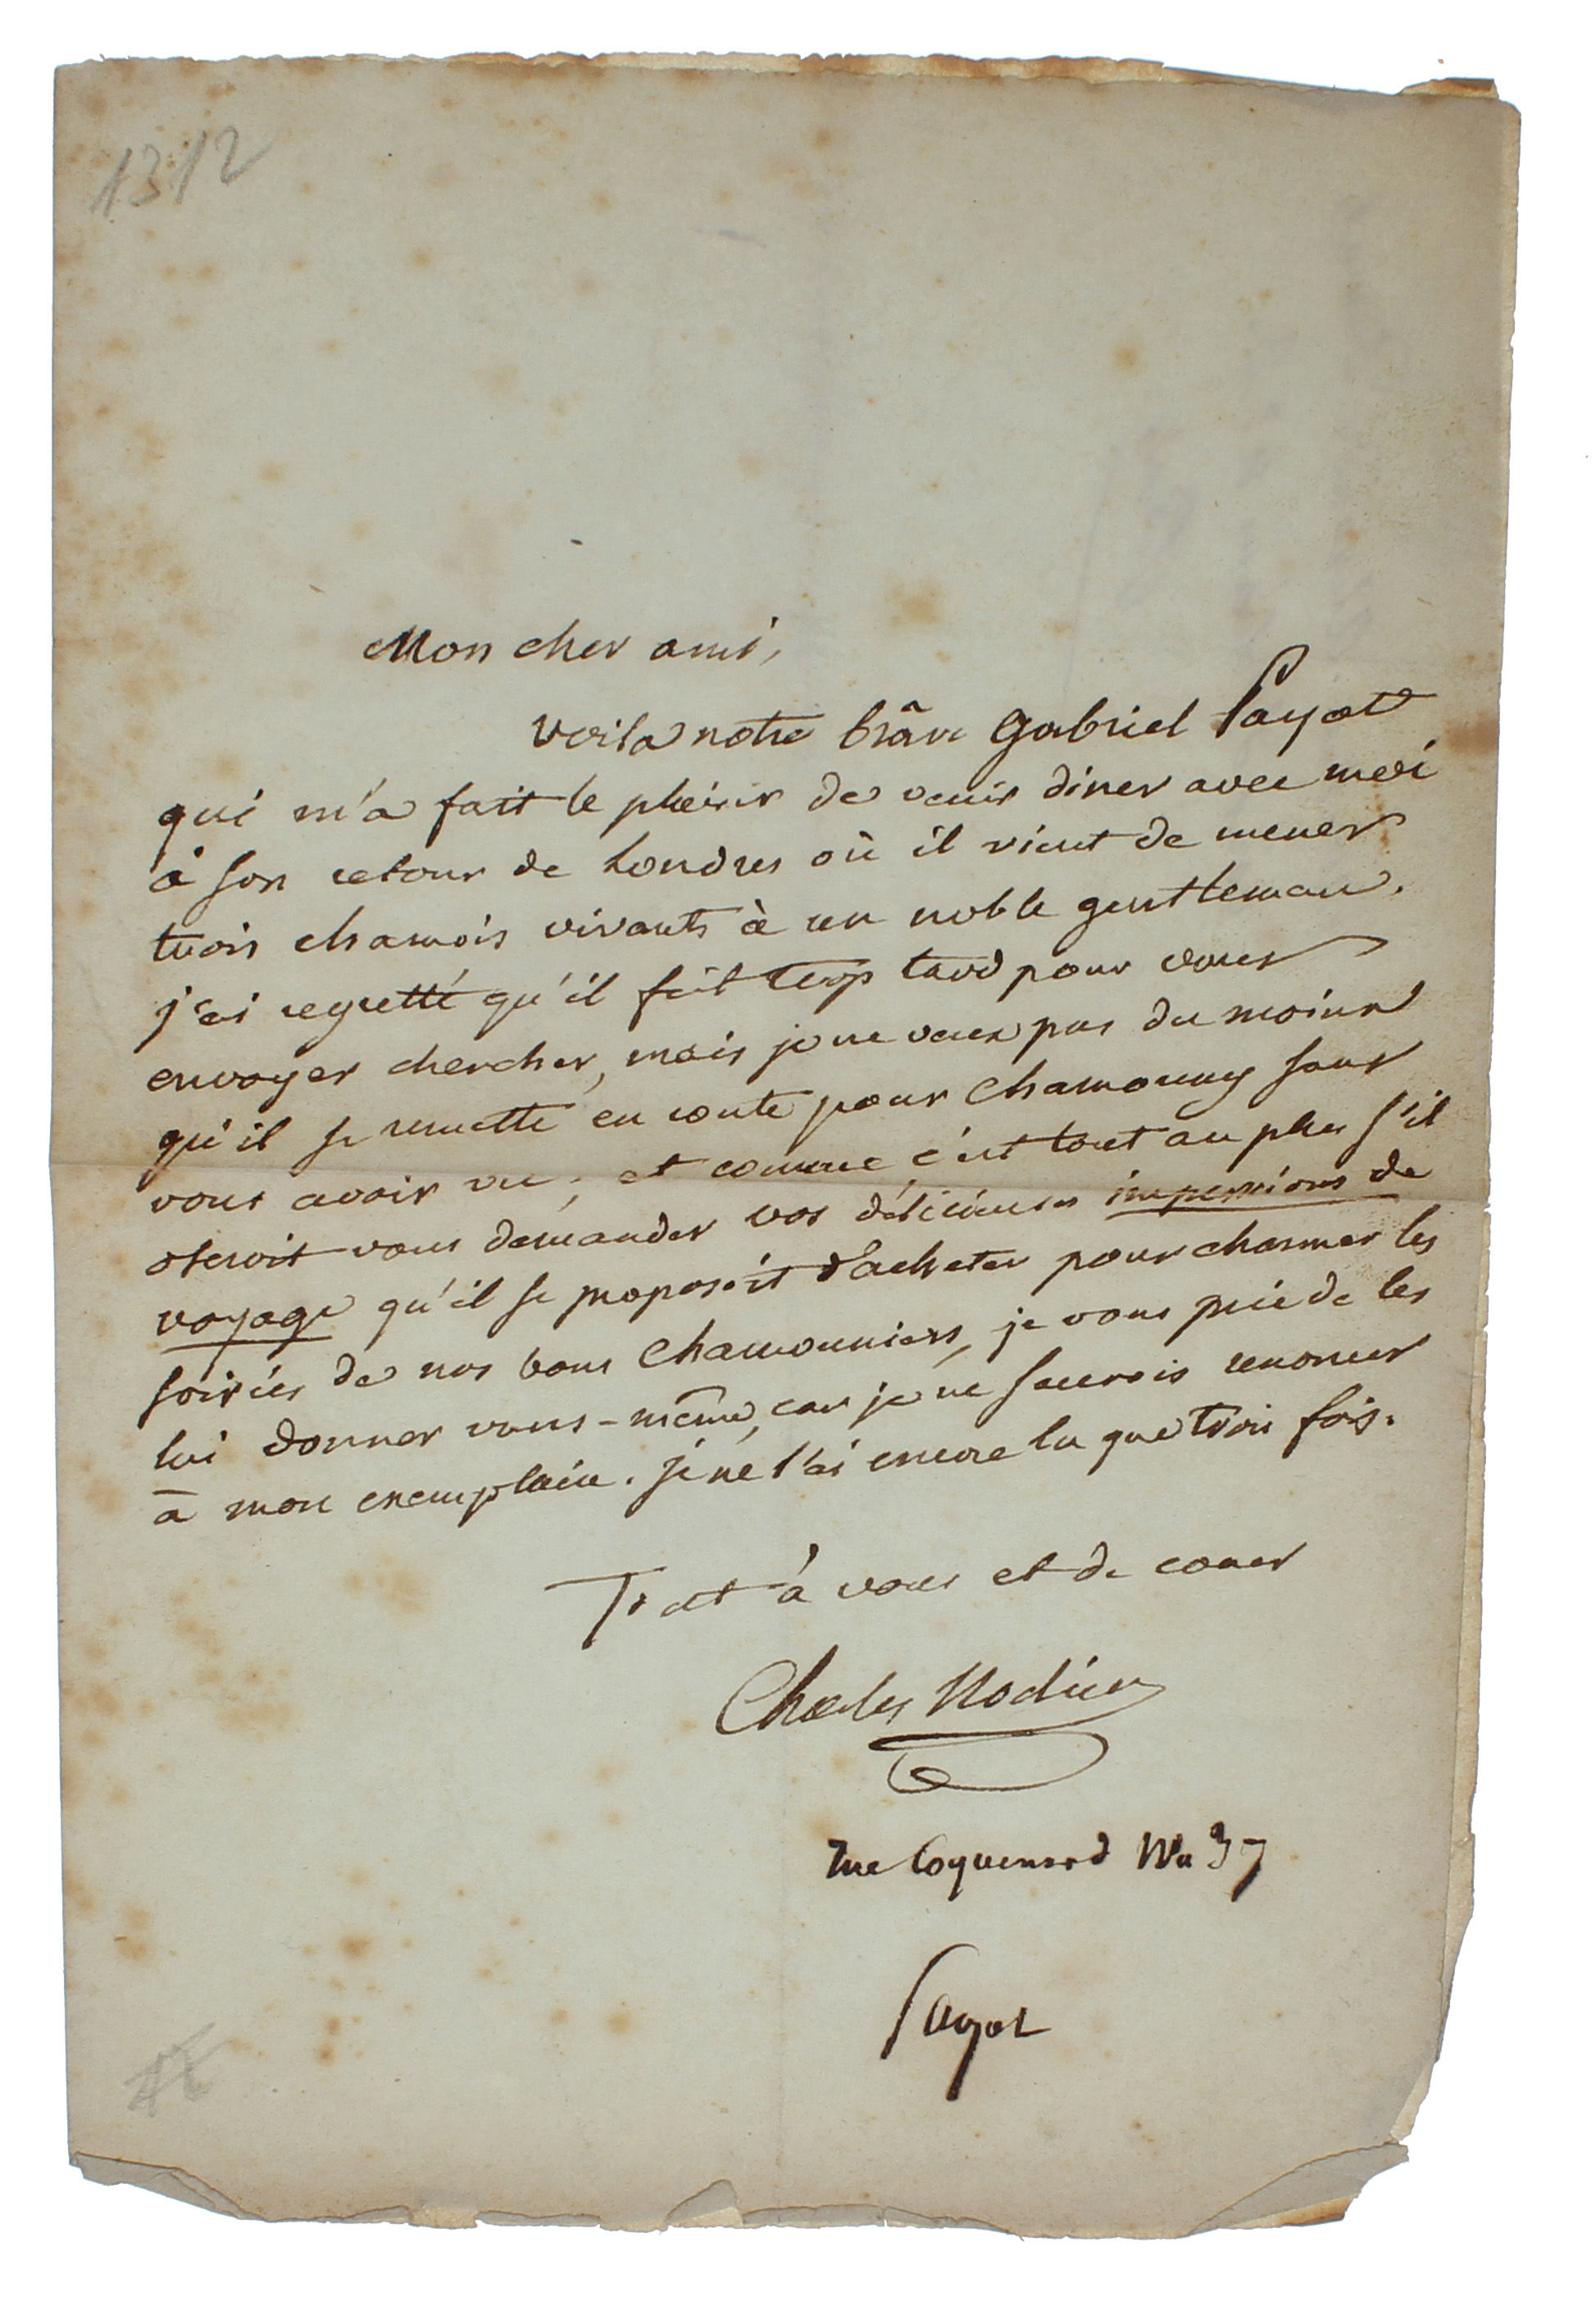 1312
Mon cher ami,
voila notre brâve Gabriel Payot
qui m'a fait le plaisir de venir diner avec moi
à son retour de Londres où il vient de mener
trois chamois vivants à un noble gentleman.
j'ai regretté qu'il fût trop tard pour vous
envoyer chercher, mais je ne veux pas du moins
qu'il se remette en route pour Chamouny sans
vous avoir vu ; et comme c'est tout au plus s'il
oseroit vous demander vos délicieuses impressions de
voyage qu'il se proposoit d'acheter pour charmer les
soirées de nos bons Chamouniers, je vous prie de les
lui donner vous-même, car je ne saurois renoncer
à mon exemplaire. je ne l'ai encore lu que trois fois.
Tout à vous et de coeur
Charles Nodier
rue Coquenard No 37
Payot